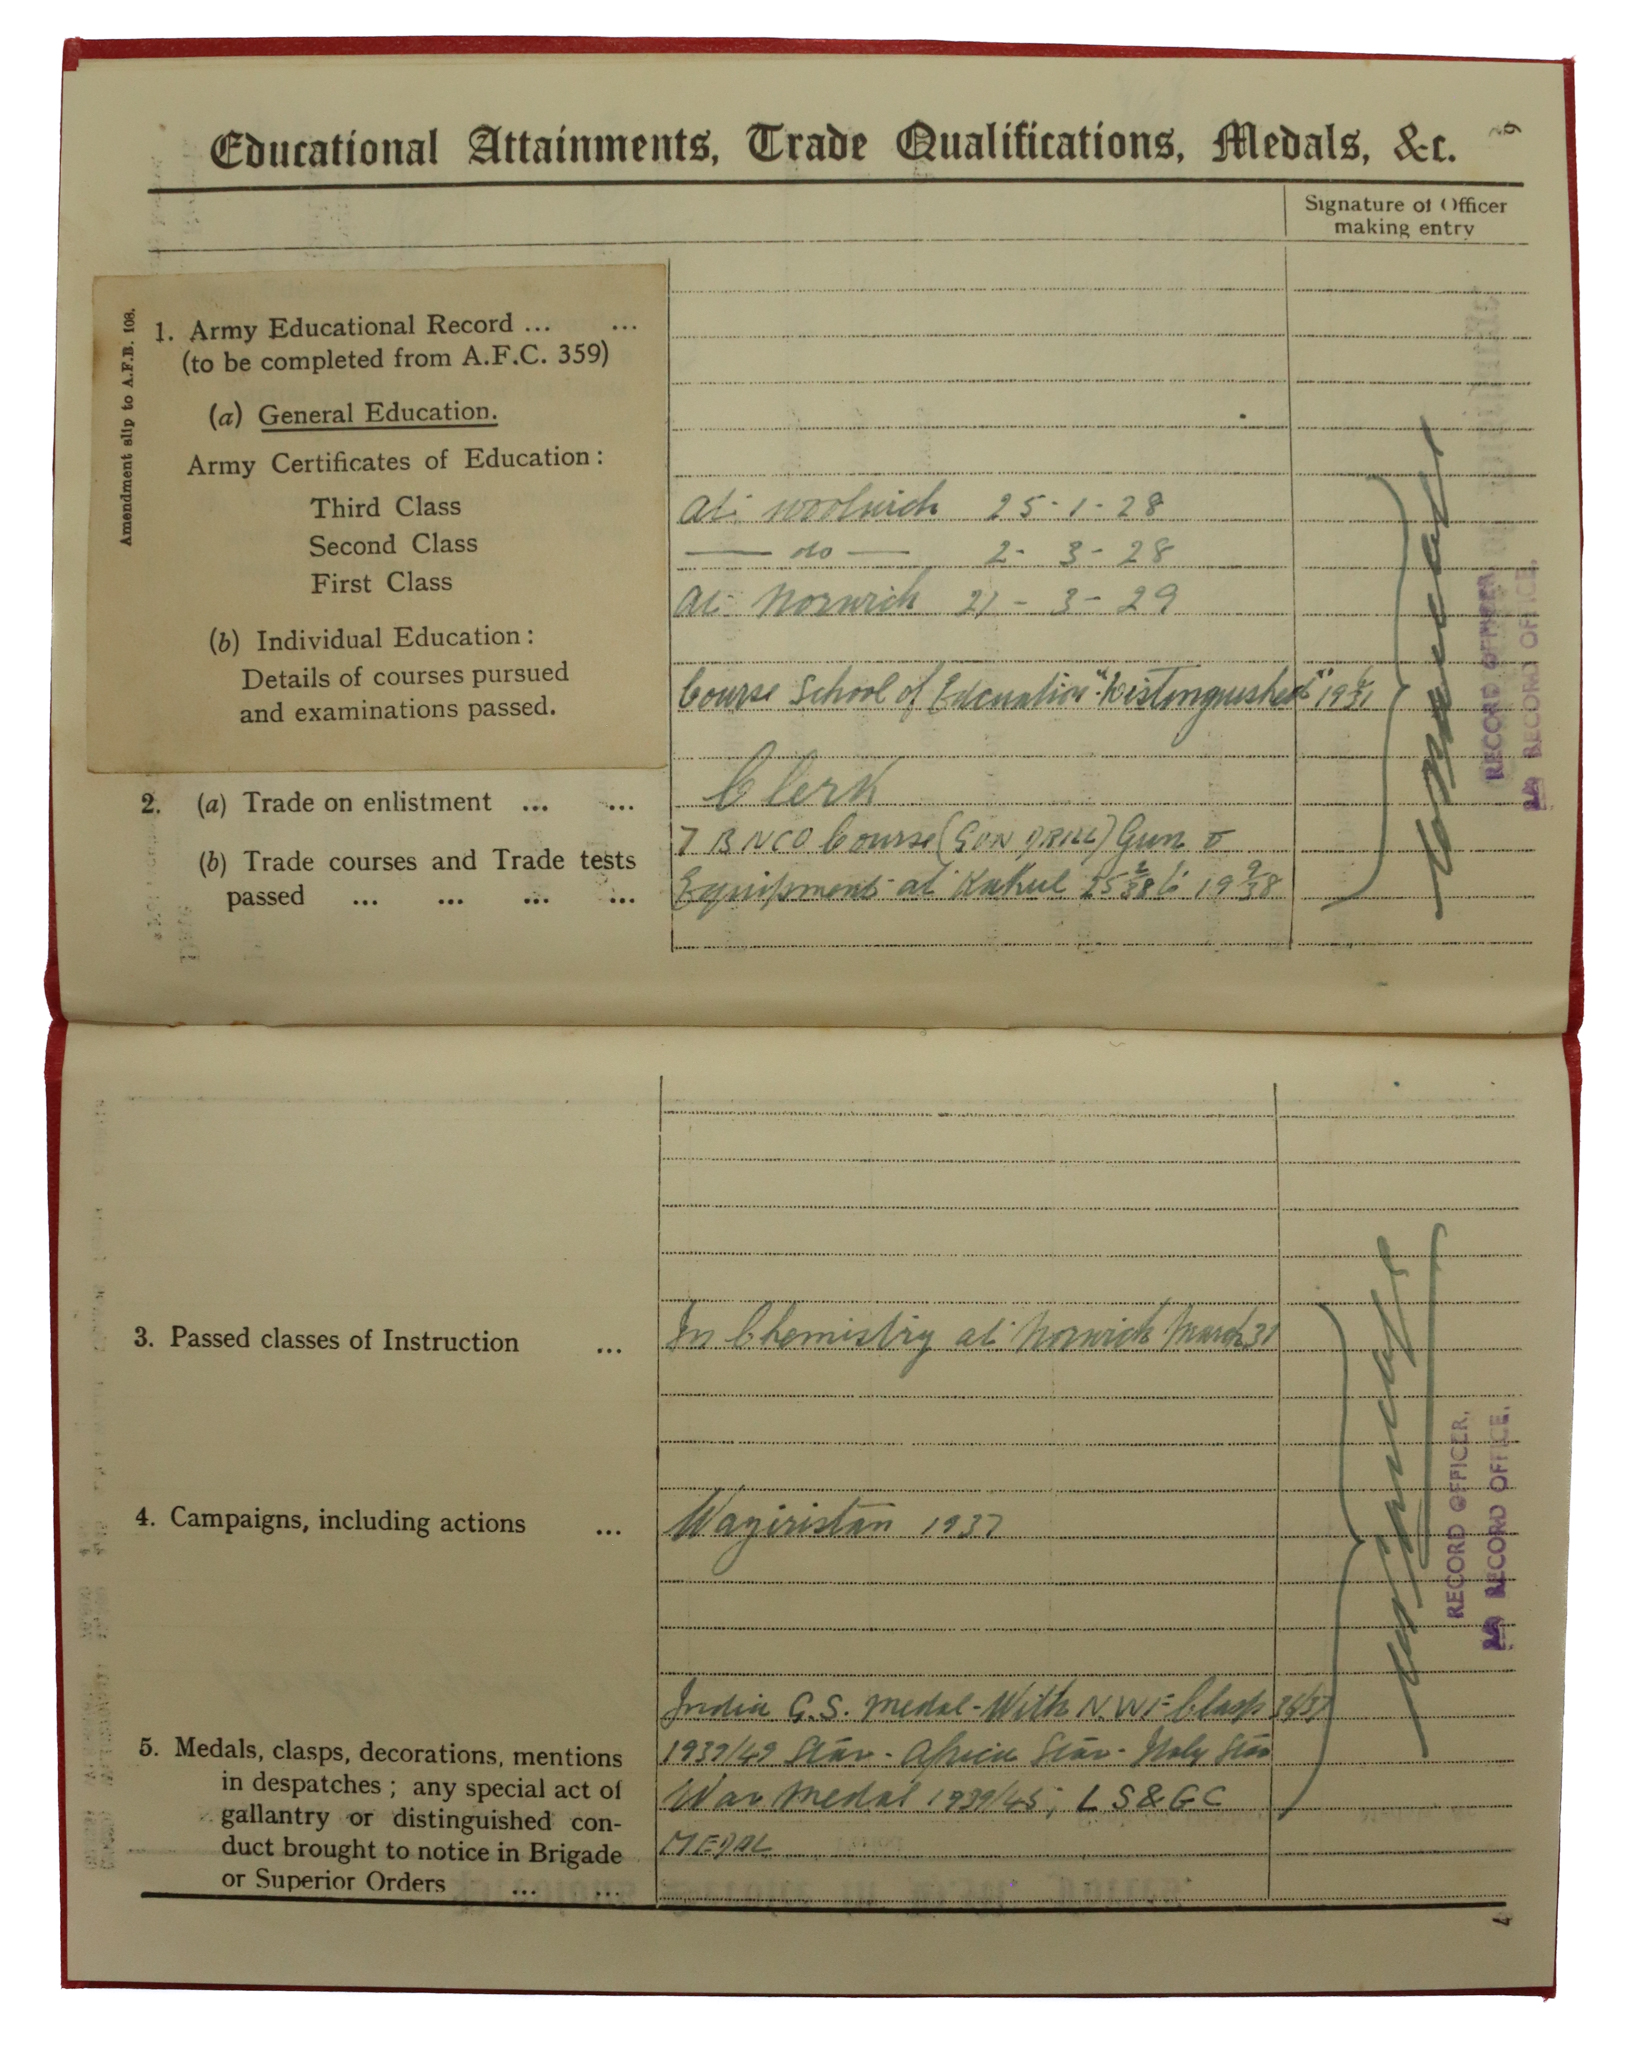 Educational Attainments, Trade Qualifications, Medals, &c.
6
Signature of Officer
making entry
Amendment slip to A.F.B. 108.
1. Army Educational Record ... ...
(to be completed from A.F.C. 359)
(a) General Education.
Army Certificates of Education :
Third Class At Woolwich 25-1-28
Second Class — do — 2-3-28
First Class At Norwich 21-3-29
(b) Individual Education :
Details of courses pursued Course School of Education "Distinguished"
and examinations passed.
2. (a) Trade on enlistment ... ... Clerk
(b) Trade courses and Trade tests NCO Course (GUN DRILL) Gun &
passed ... ... ... ... Equipment at Kakul
RECORD OFFICER,
RA RECORD OFFICE.
3. Passed classes of Instruction ... In Chemistry at Norwich March 31
4. Campaigns, including actions ... Waziristan 1937
India G.S. Medal - With N.W.F Clasp 36/37
5. Medals, clasps, decorations, mentions 1939/45 Star - Africa Star - Italy Star
in despatches ; any special act of
gallantry or distinguished con- War Medal 1939/45, LS&GC
duct brought to notice in Brigade MEDAL
or Superior Orders ... ...
RECORD OFFICER,
RA RECORD OFFICE.
7